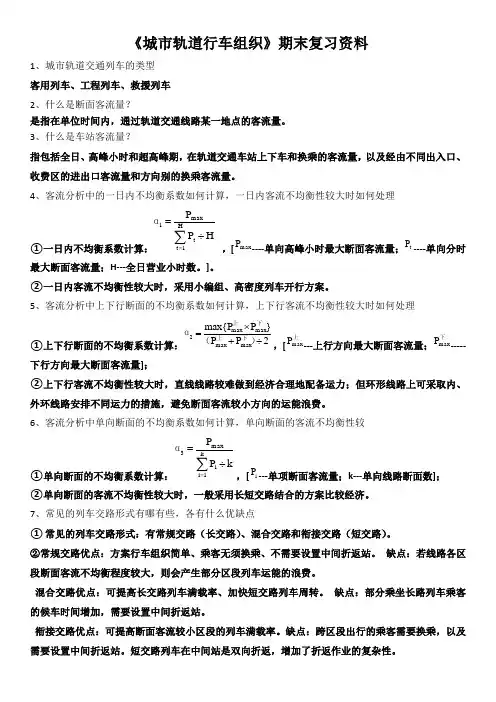 《城市轨道行车组织》期末复习资料
1、城市轨道交通列车的类型
客用列车、工程列车、救援列车
2、什么是断面客流量？
是指在单位时间内，通过轨道交通线路某一地点的客流量。
3、什么是车站客流量？
指包括全日、高峰小时和超高峰期，在轨道交通车站上下车和换乘的客流量，以及经由不同出入口、
收费区的进出口客流量和方向别的换乘客流量。
4、客流分析中的一日内不均衡系数如何计算，一日内客流不均衡性较大时如何处理
①一日内不均衡系数计算：α₁ = Pmax / (∑(t=1→H) Pt ÷ H)，[Pmax----单向高峰小时最大断面客流量；Pt----单向分时
最大断面客流量；H---全日营业小时数。]。
②一日内客流不均衡性较大时，采用小编组、高密度列车开行方案。
5、客流分析中上下行断面的不均衡系数如何计算，上下行客流不均衡性较大时如何处理
①上下行断面的不均衡系数计算：α₂ = max{P上max × P下max} / (P上max + P下max) ÷ 2，[P上max---上行方向最大断面客流量；P下max-----
下行方向最大断面客流量];
②上下行客流不均衡性较大时，直线线路较难做到经济合理地配备运力；但环形线路上可采取内、
外环线路安排不同运力的措施，避免断面客流较小方向的运能浪费。
6、客流分析中单向断面的不均衡系数如何计算，单向断面的客流不均衡性较
①单向断面的不均衡系数计算：α₃ = Pmax / (∑(i=1→k) Pi ÷ k)，[Pi---单项断面客流量；k---单向线路断面数];
②单向断面的客流不均衡性较大时，一般采用长短交路结合的方案比较经济。
7、常见的列车交路形式有哪有些，各有什么优缺点
①常见的列车交路形式：有常规交路（长交路）、混合交路和衔接交路（短交路）。
②常规交路优点：方案行车组织简单、乘客无须换乘、不需要设置中间折返站。 缺点：若线路各区
段断面客流不均衡程度较大，则会产生部分区段列车运能的浪费。
混合交路优点：可提高长交路列车满载率、加快短交路列车周转。 缺点：部分乘坐长路列车乘客
的候车时间增加，需要设置中间折返站。
衔接交路优点：可提高断面客流较小区段的列车满载率。缺点：跨区段出行的乘客需要换乘，以及
需要设置中间折返站。短交路列车在中间站是双向折返，增加了折返作业的复杂性。